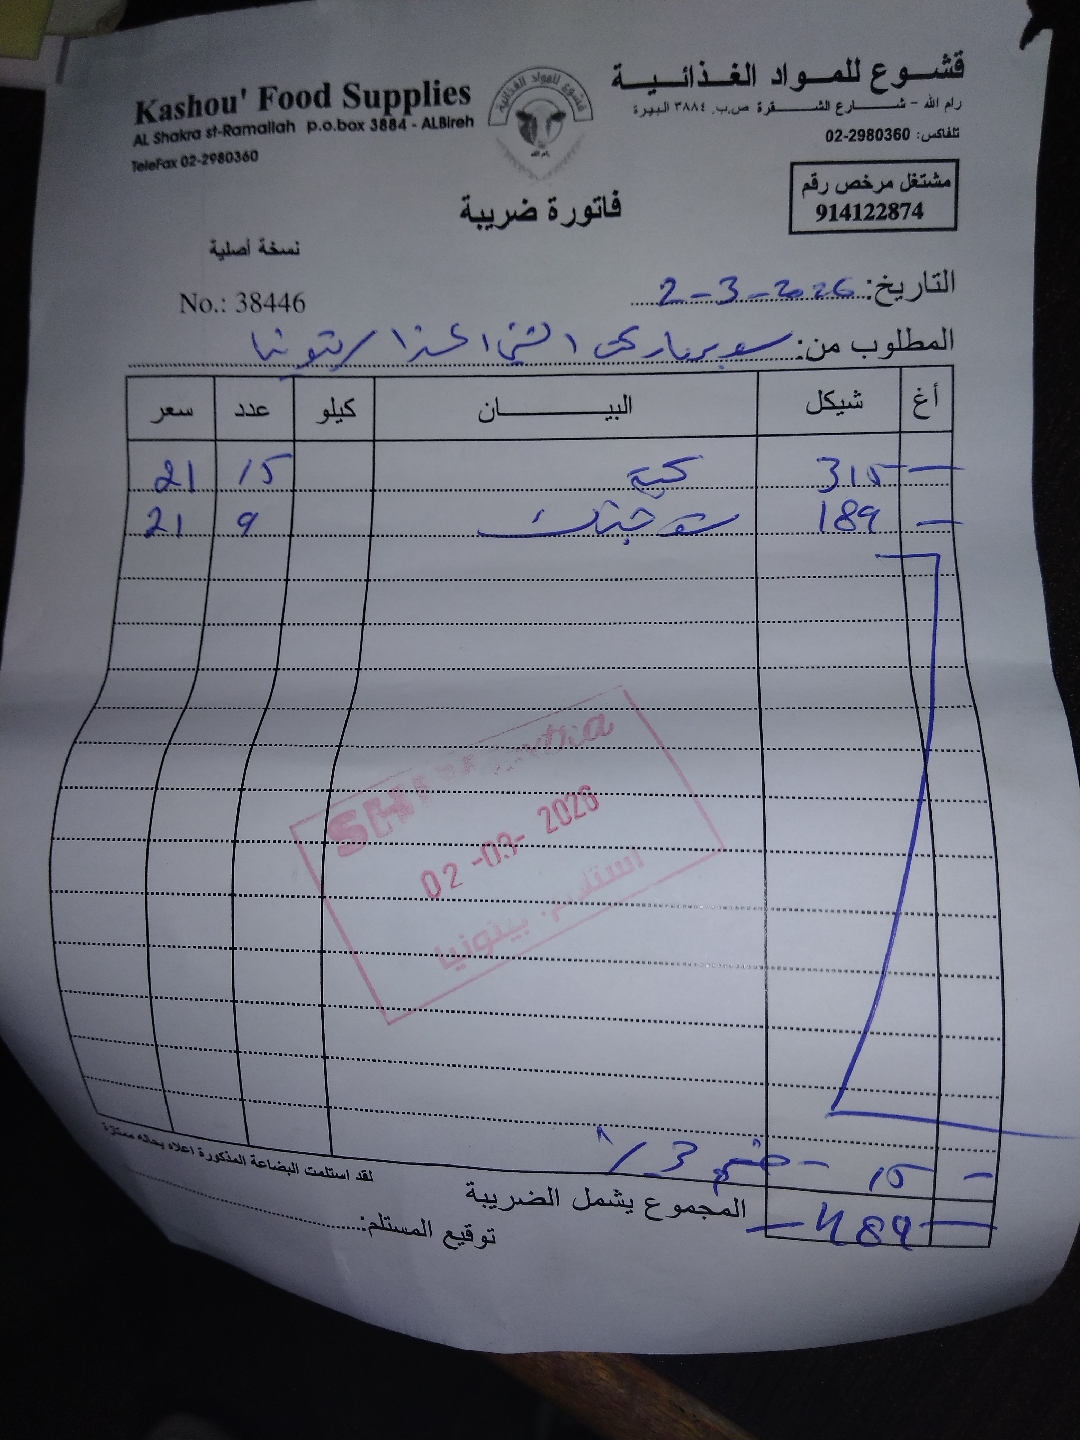 Kashou' Food Supplies
AL Shakra st-Ramallah p.o.box 3884 - ALBireh
TeleFax 02-2980360
قشوع للمواد الغذائية
رام الله
قشوع للمواد الغذائية
رام الله - شارع الشقرة ص.ب. ٣٨٨٤ البيرة
تلفاكس: 02-2980360
مشتغل مرخص رقم
914122874
فاتورة ضريبة
نسخة أصلية
No.: 38446
التاريخ: 2-3-2026
المطلوب من: سوبرماركت الشني
أغ شيكل البيــــان كيلو عدد سعر
315 كبة 15 21
189 9 21
02-03-2026
استلام بيتونيا
15 - خصم 3%
المجموع يشمل الضريبة 489
لقد استلمت البضاعة المذكورة اعلاه بحاله ممتازة
توقيع المستلم: